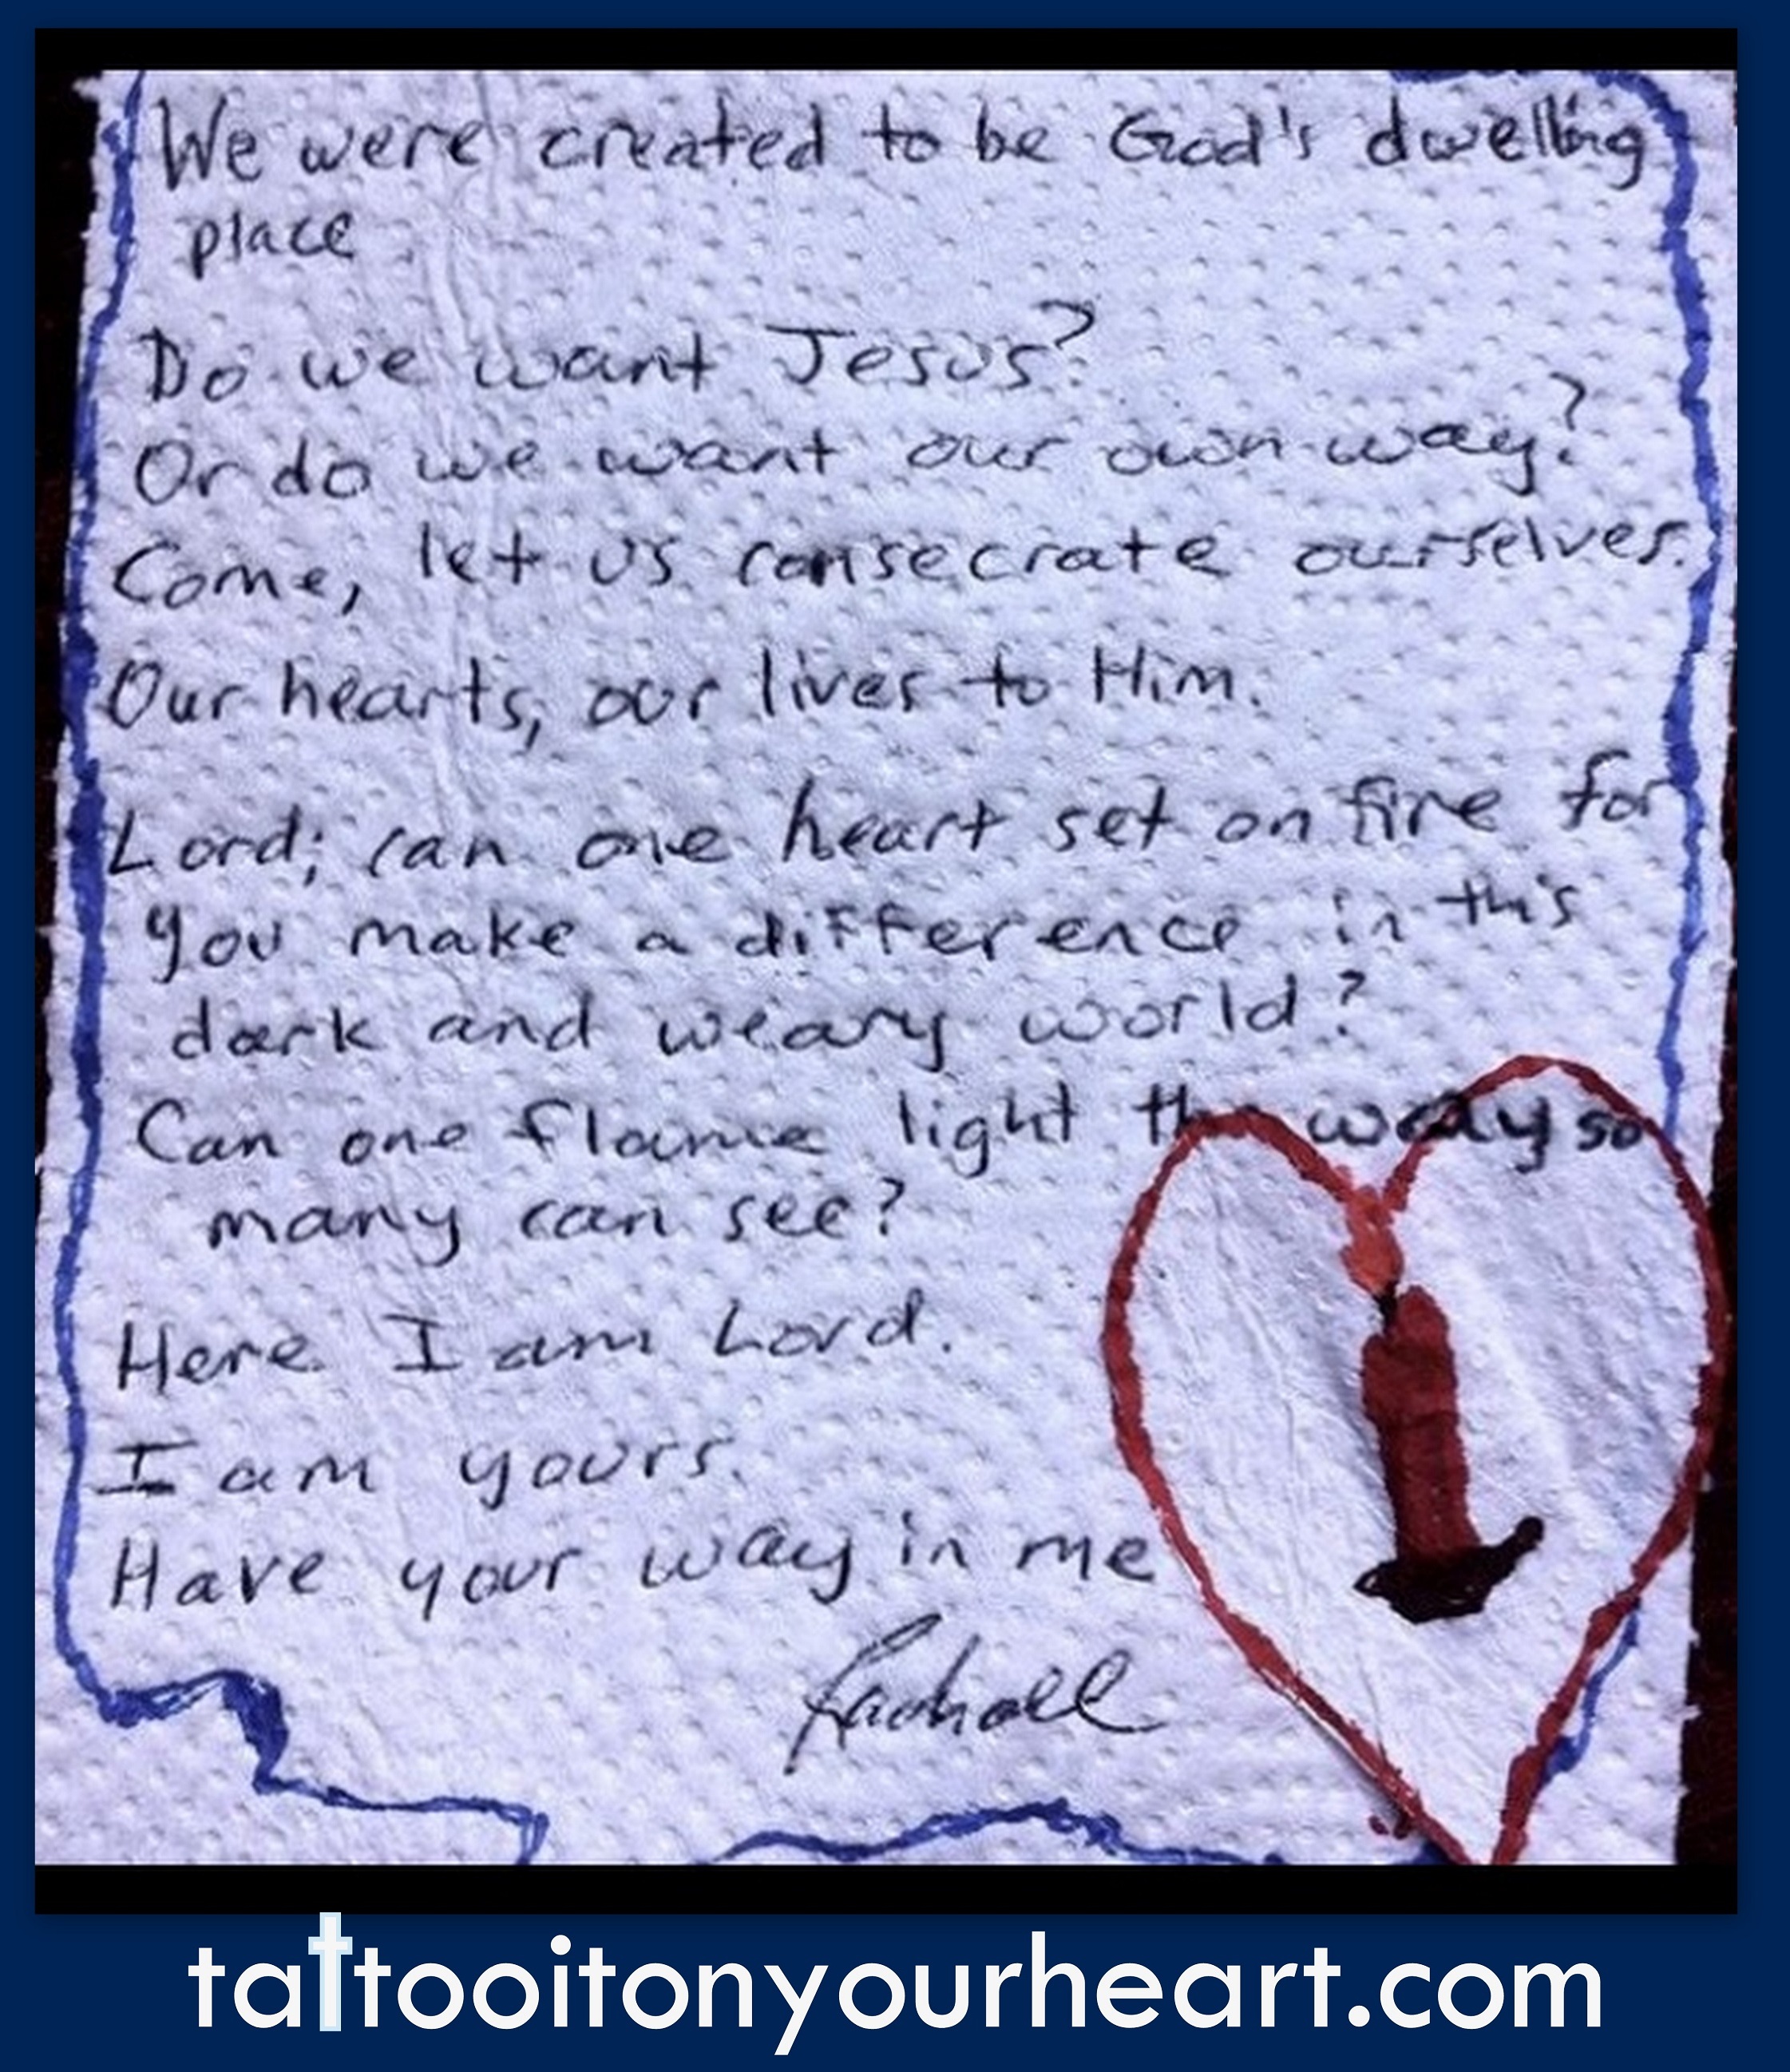 We were created to be God's dwelling
place
Do we want Jesus?
Or do we want our own way?
Come, let us consecrate ourselves.
Our hearts, our lives to Him.
Lord; can one heart set on fire for
you make a difference in this
dark and weary world?
Can one flame light the way so
many can see?
Here I am Lord.
I am yours.
Have your way in me
Rachael
tattooitonyourheart.com